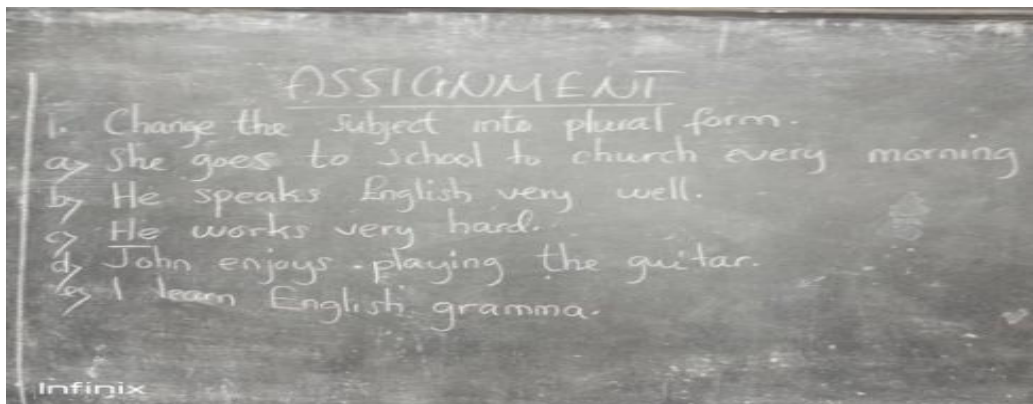 ASSIGNMENT
1. Change the subject into plural form.
a> She goes to school to church every morning
b> He speaks English very well.
c> He works very hard.
d> John enjoys playing the guitar.
e> I learn English gramma.
Infinix